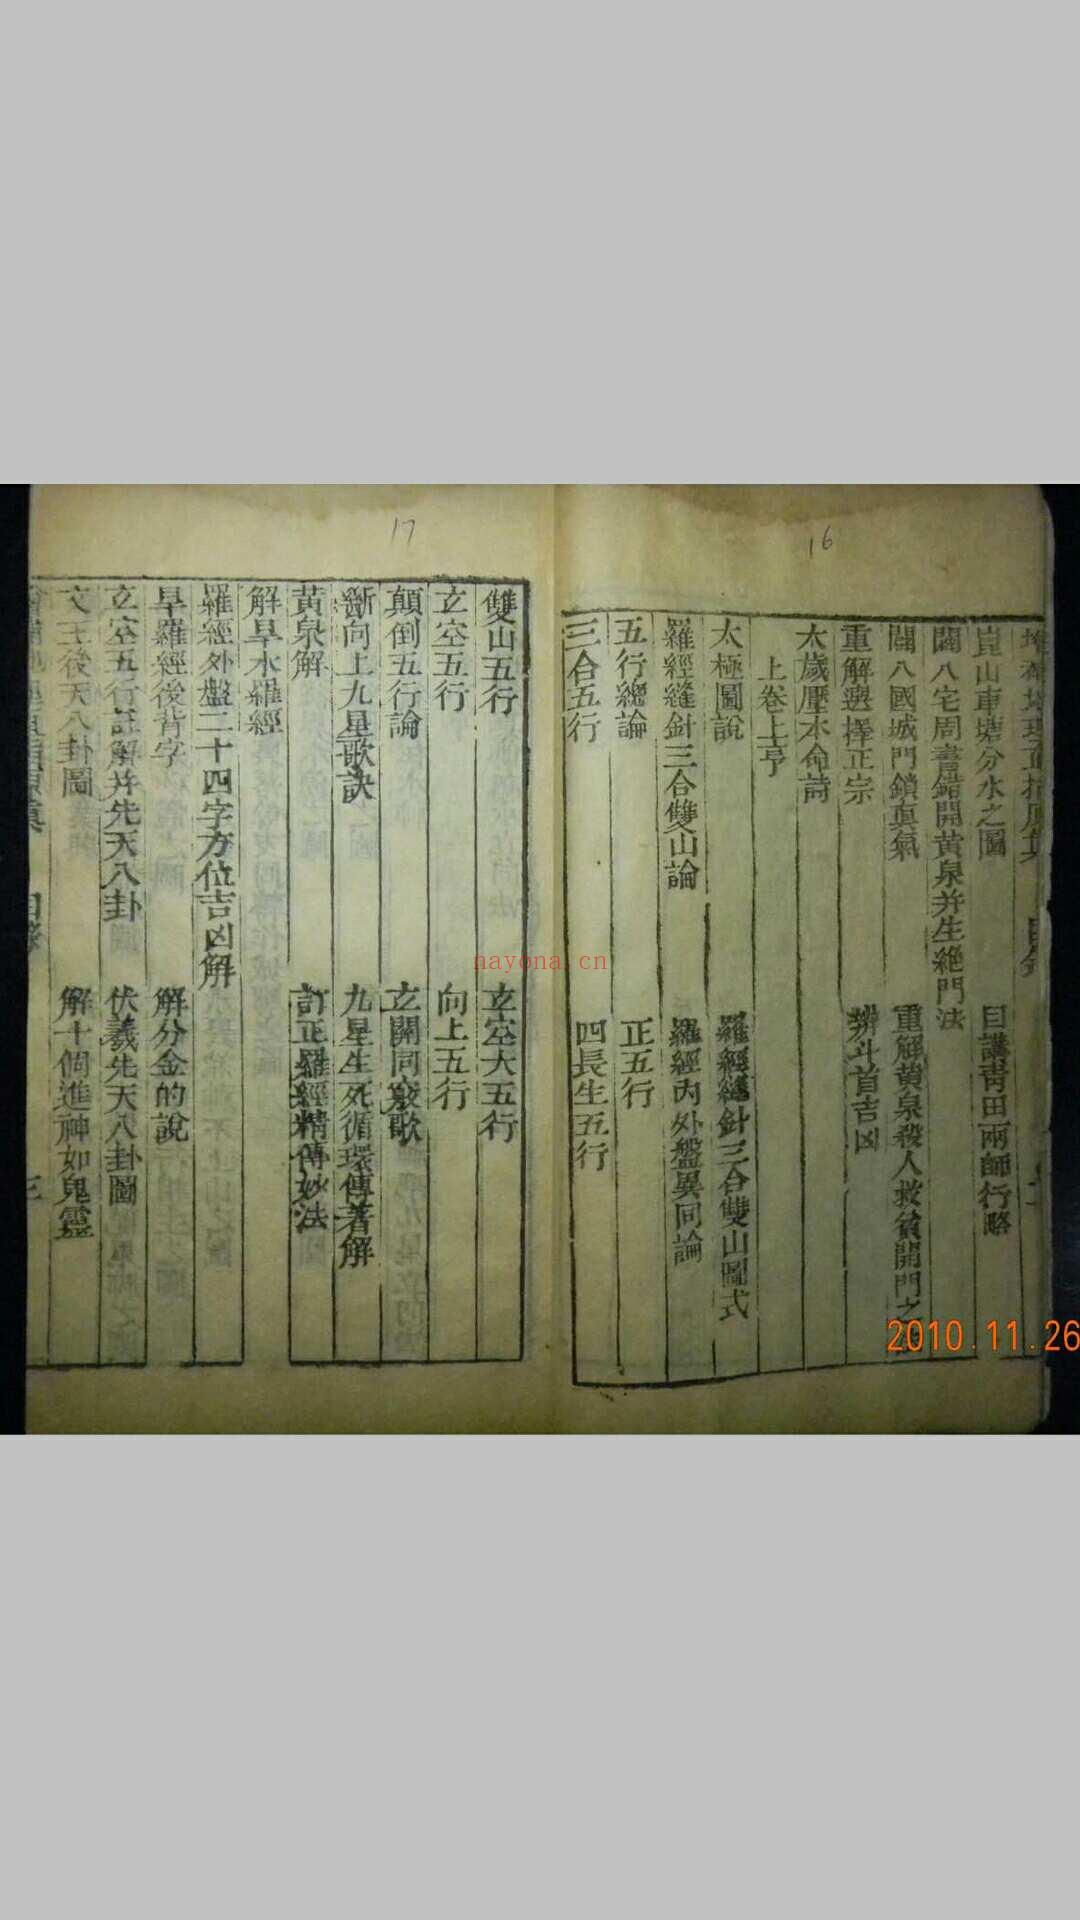 16
崑山車塘分水之圖
目講靑田兩師行略
闢八宅周書錯開黃泉并生絶門法
闢八國城門鎖眞氣
重解黃泉殺人救貧開門之
重解選擇正宗
辨斗首吉凶
太歲壓本命詩
上卷上亨
太極圖說
羅經縫針三合雙山圖式
羅經縫針三合雙山論
羅經內外盤異同論
五行總論
正五行
三合五行
四長生五行
17
雙山五行
玄空大五行
玄空五行
向上五行
顛倒五行論
玄關同竅歌
斷向上九星歌訣
九星生死循環傳著解
黃泉解
訂正羅經精傳妙法
解旱水羅經
羅經外盤二十四字方位吉凶解
旱羅經後背字
解分金的說
玄空五行註解并先天八卦
伏羲先天八卦圖
文王後天八卦圖
解十個進神如鬼靈
三
nayona.cn
2010.11.26